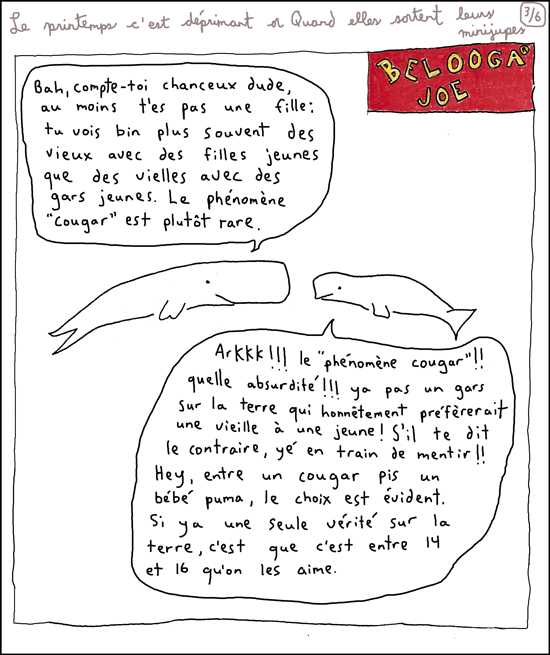 Le printemps c'est déprimant or Quand elles sortent leurs
minijupes
3/6
BELOOGA
JOE
Bah, compte-toi chanceux dude,
au moins t'es pas une fille:
tu vois bin plus souvent des
vieux avec des filles jeunes
que des vielles avec des
gars jeunes. Le phénomène
"cougar" est plutôt rare.
Arkkk!!! le "phénomène cougar"!!
quelle absurdité!!! ya pas un gars
sur la terre qui honnêtement préfèrerait
une vieille à une jeune! S'il te dit
le contraire, yé en train de mentir!!
Hey, entre un cougar pis un
bébé puma, le choix est évident.
Si ya une seule vérité sur la
terre, c'est que c'est entre 14
et 16 qu'on les aime.